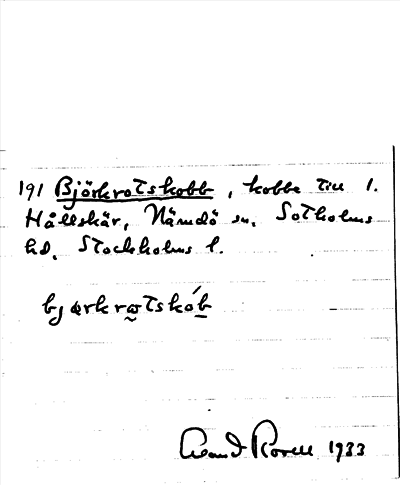 191 Björkrotskobb, kobbe till l.
Hållskär, Nämdö sn. Sotholms
hd. Stockholms l.
bjørkrωtskób
1933